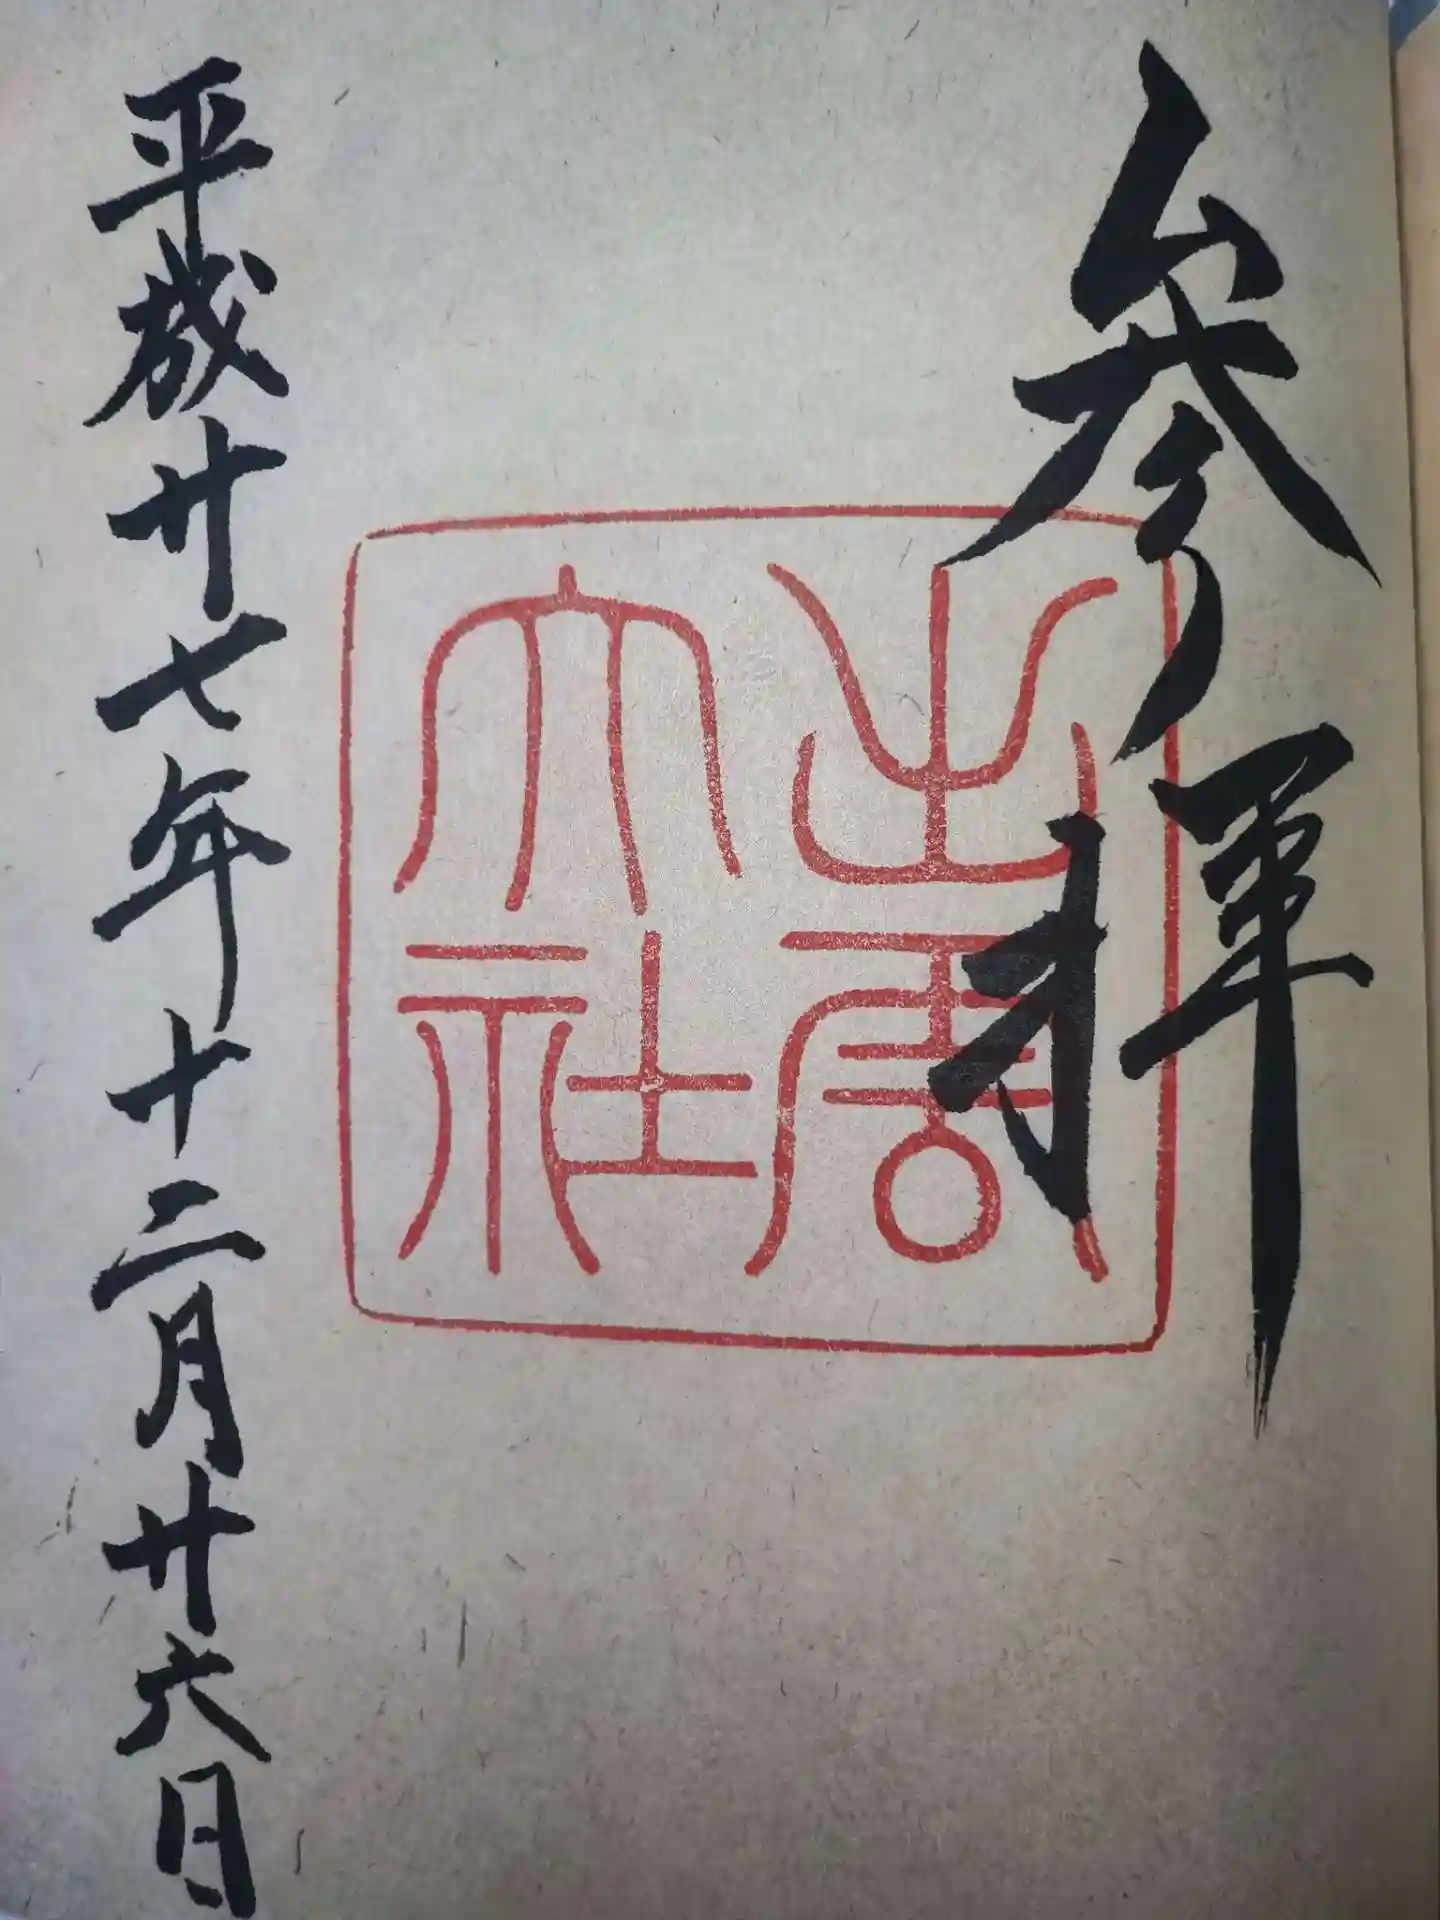 參拜
出雲大社
平成廿七年十二月廿六日